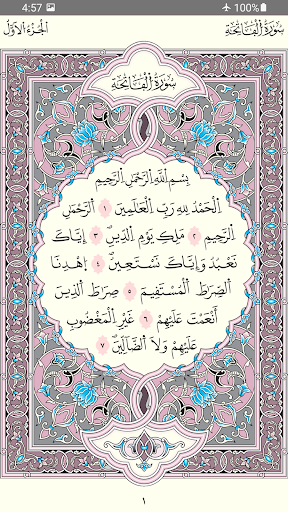 4:57 100%
سُورَةُ الْفَاتِحَةِ الْجُزْءُ الْأَوَّلُ
سُورَةُ الْفَاتِحَةِ
بِسْمِ اِللَّهِ اِلرَّحْمَٰنِ اِلرَّحِيمِ
اَلْحَمْدُ لِلهِ رَبِّ اِلْعَٰلَمِينَ ١ اَلرَّحْمَٰنِ
اِلرَّحِيمِ ٢ مَلِكِ يَوْمِ اِلدِّينِ ٣ إِيَّاكَ
نَعْبُدُ وَإِيَّاكَ نَسْتَعِينُ ٤ اُهْدِنَا
اَلصِّرَٰطَ اَلْمُسْتَقِيمَ ٥ صِرَٰطَ اَلذِينَ
أَنْعَمْتَ عَلَيْهِمْ ٦ غَيْرِ اِلْمَغْضُوبِ
عَلَيْهِمْ وَلَا اَلضَّآلِّينَ ٧
١